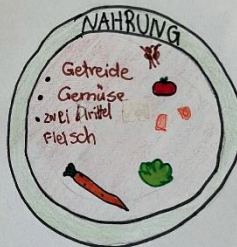 NAHRUNG
• Getreide
• Gemüse
• zwei Drittel
Fleisch